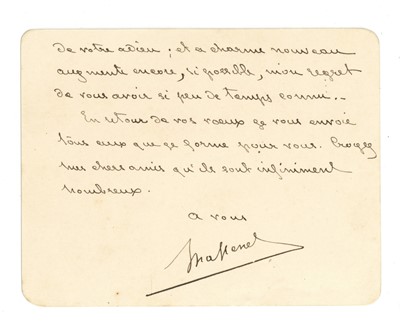 de votre adieu ; et ce charme nouveau
augmente encore, si possible, mon regret
de vous avoir si peu de temps connu..
En retour de vos vœux je vous envoie
tous ceux que je forme pour vous. Croyez
mes chers amis qu'ils sont infiniment
nombreux.
a vous
Massenet